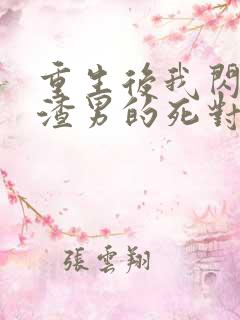 重生後我閃
渣男的死對
張雲翔